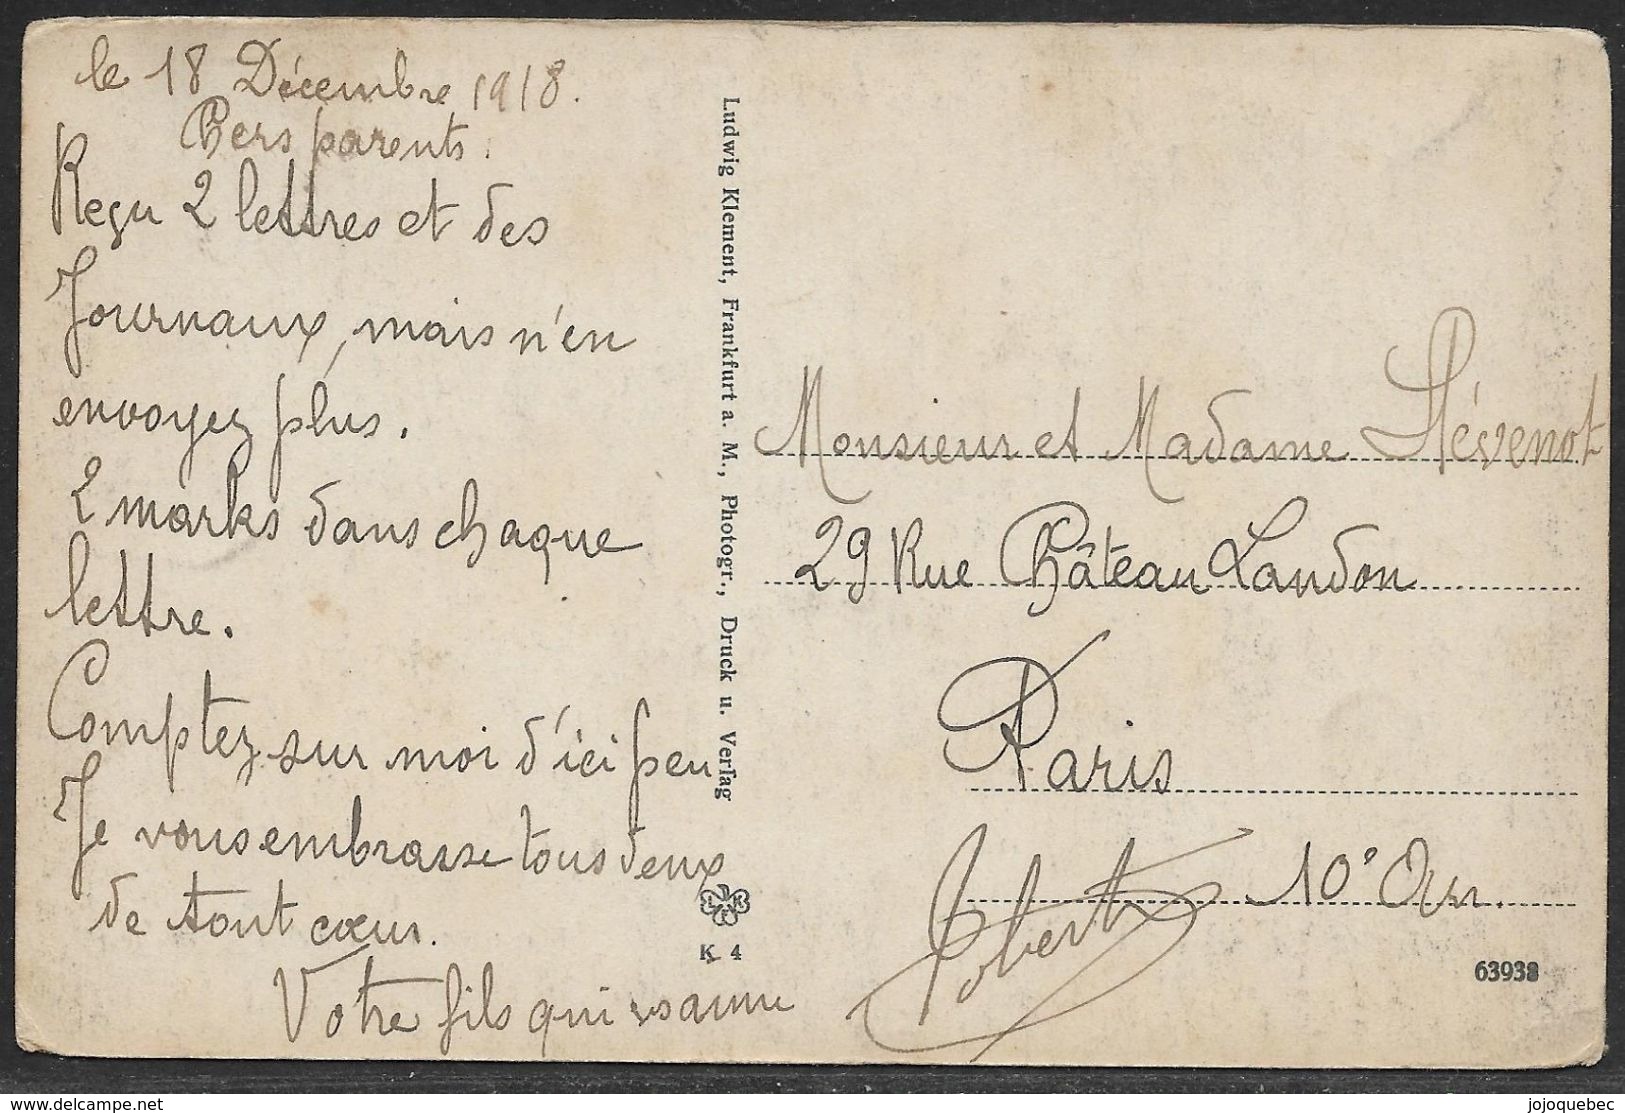 le 18 Décembre 1918.
Chers parents.
Reçu 2 lettres et des
Journaux, mais n'en
envoyez plus.
2 marks dans chaque
lettre.
Comptez sur moi d'ici peu
Je vous embrasse tous deux
de tout cœur.
Votre fils qui vs aime
Robert
Ludwig Klement, Frankfurt a. M., Photogr., Druck u. Verlag
K 4
Monsieur et Madame Thévenot
29 Rue Château Landon
Paris
10e Arr.
63938
delcampe.net
jojoquebec